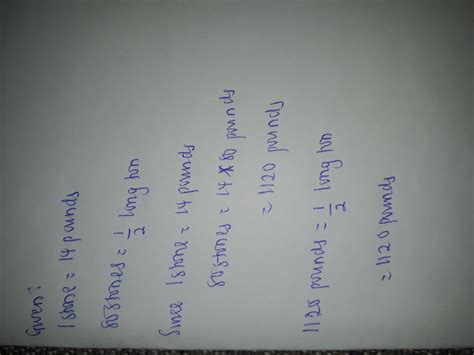 Given:
1 stone = 14 pounds
80 stones = 1/2 long ton
Since 1 stone = 14 pounds
80 stones = 14 × 80 pounds
= 1120 pounds
1120 pounds = 1/2 long ton
= 1120 pounds